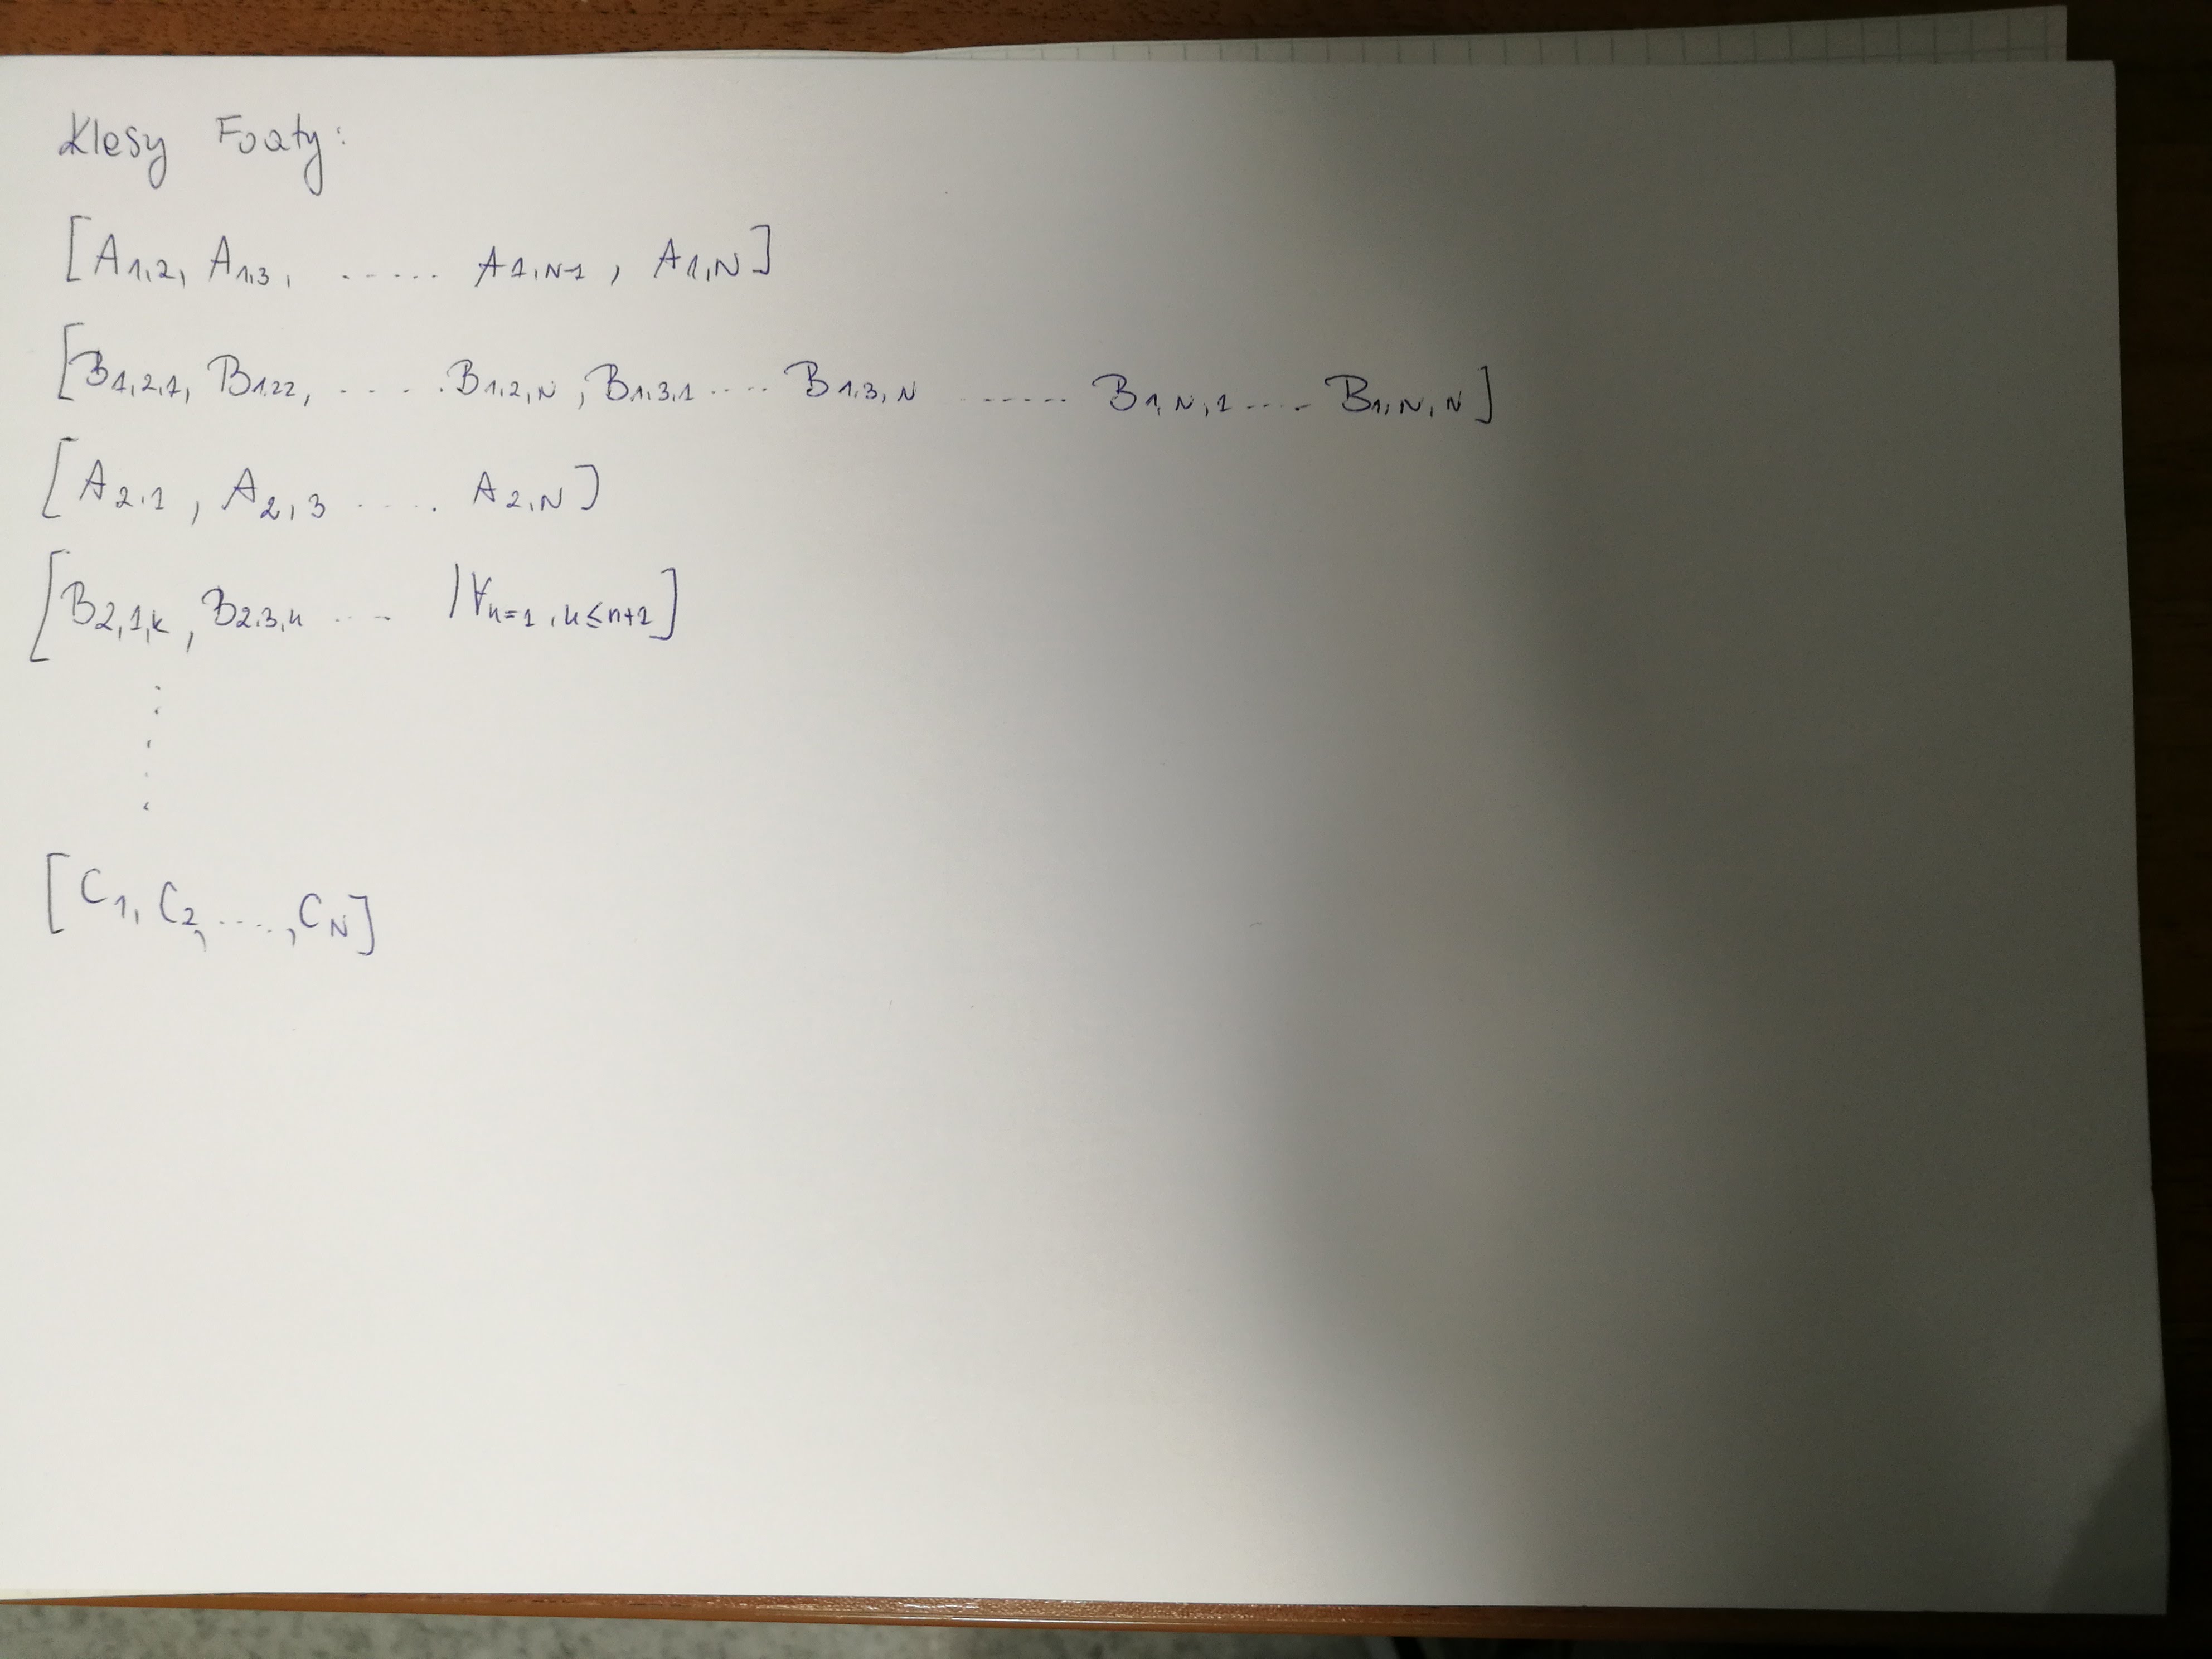 Klasy Foaty:
[A1,2, A1,3, ...... A1,N-1, A1,N]
[B1,2,1, B122, ..... B1,2,N, B1,3,1 .... B1,3,N ...... B1,N,1 .... B1,N,N]
[A2,1, A2,3 .... A2,N]
[B2,1,k, B2,3,k .... | ∀k=1, k≤n+1]
[C1, C2, ...., CN]